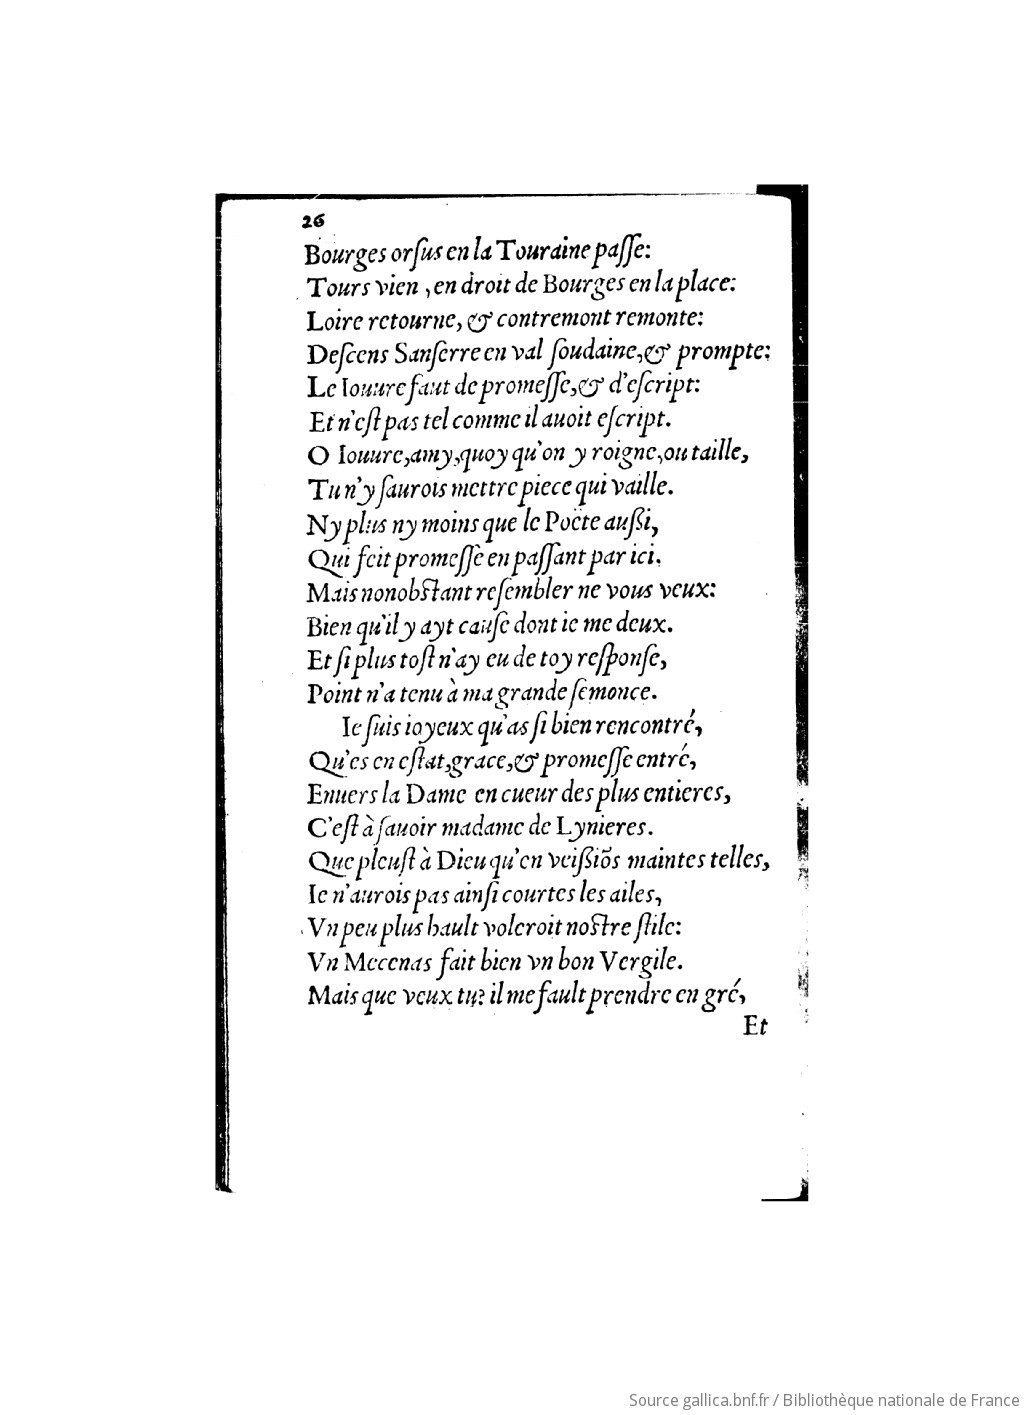 26
Bourges orſus en la Touraine paſſe:
Tours vien, en droit de Bourges en la place:
Loire retourne, & contremont remonte:
Deſcens Sanſerre en val ſoudaine, & prompte:
Le Iouure faut de promeſſe, & d'eſcript:
Et n'eſt pas tel comme il auoit eſcript.
O Iouure, amy, quoy qu'on y roigne, ou taille,
Tu n'y ſaurois mettre piece qui vaille.
Ny plus ny moins que le Poëte auſsi,
Qui feit promeſſe en paſſant par ici.
Mais nonobſtant reſembler ne vous veux:
Bien qu'il y ayt cauſe dont ie me deux.
Et ſi plus toſt n'ay eu de toy reſponſe,
Point n'a tenu à ma grande ſemonce.
Ie ſuis ioyeux qu'as ſi bien rencontré,
Qu'es en eſtat, grace, & promeſſe entré,
Enuers la Dame en cueur des plus entieres,
C'eſt à ſauoir madame de Lynieres.
Que pleuſt à Dieu qu'en veiſsiõs maintes telles,
Ie n'aurois pas ainſi courtes les ailes,
Vn peu plus hault voleroit noſtre ſtile:
Vn Mecenas fait bien vn bon Vergile.
Mais que veux tu? il me fault prendre en gré,
Et
Source gallica.bnf.fr / Bibliothèque nationale de France